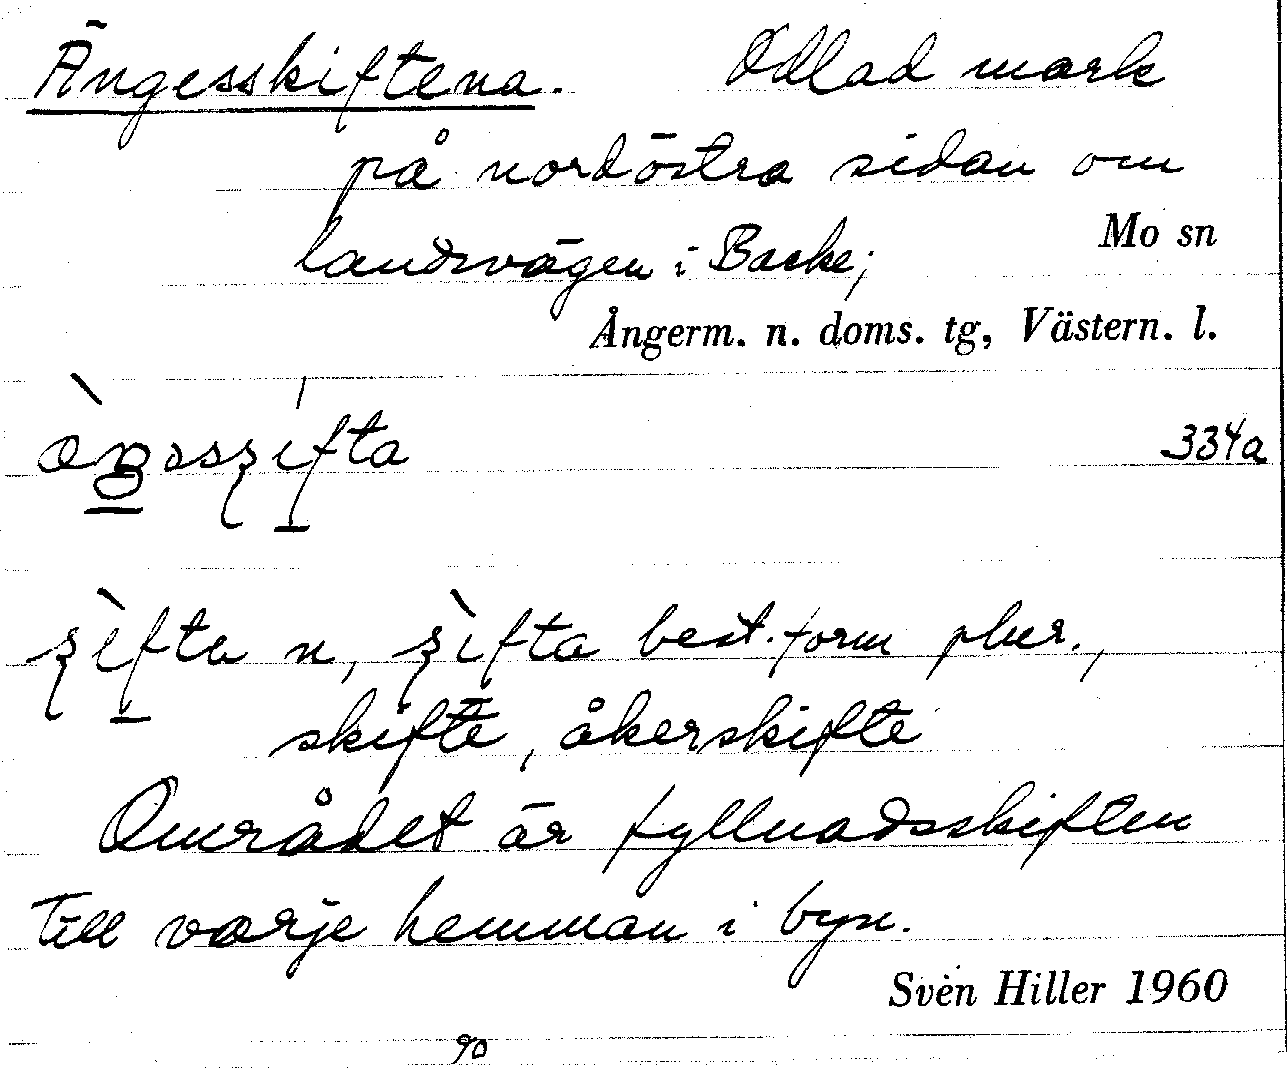 Ängesskiftena. Odlad mark
på nordöstra sidan om
landsvägen i Backe; Mo sn
Ångerm. n. doms. tg, Västern. l.
334a
n, best. form plur.,
skifte, åkerskifte
Området är fyllnadsskiften
till varje hemman i byn.
Sven Hiller 1960
90